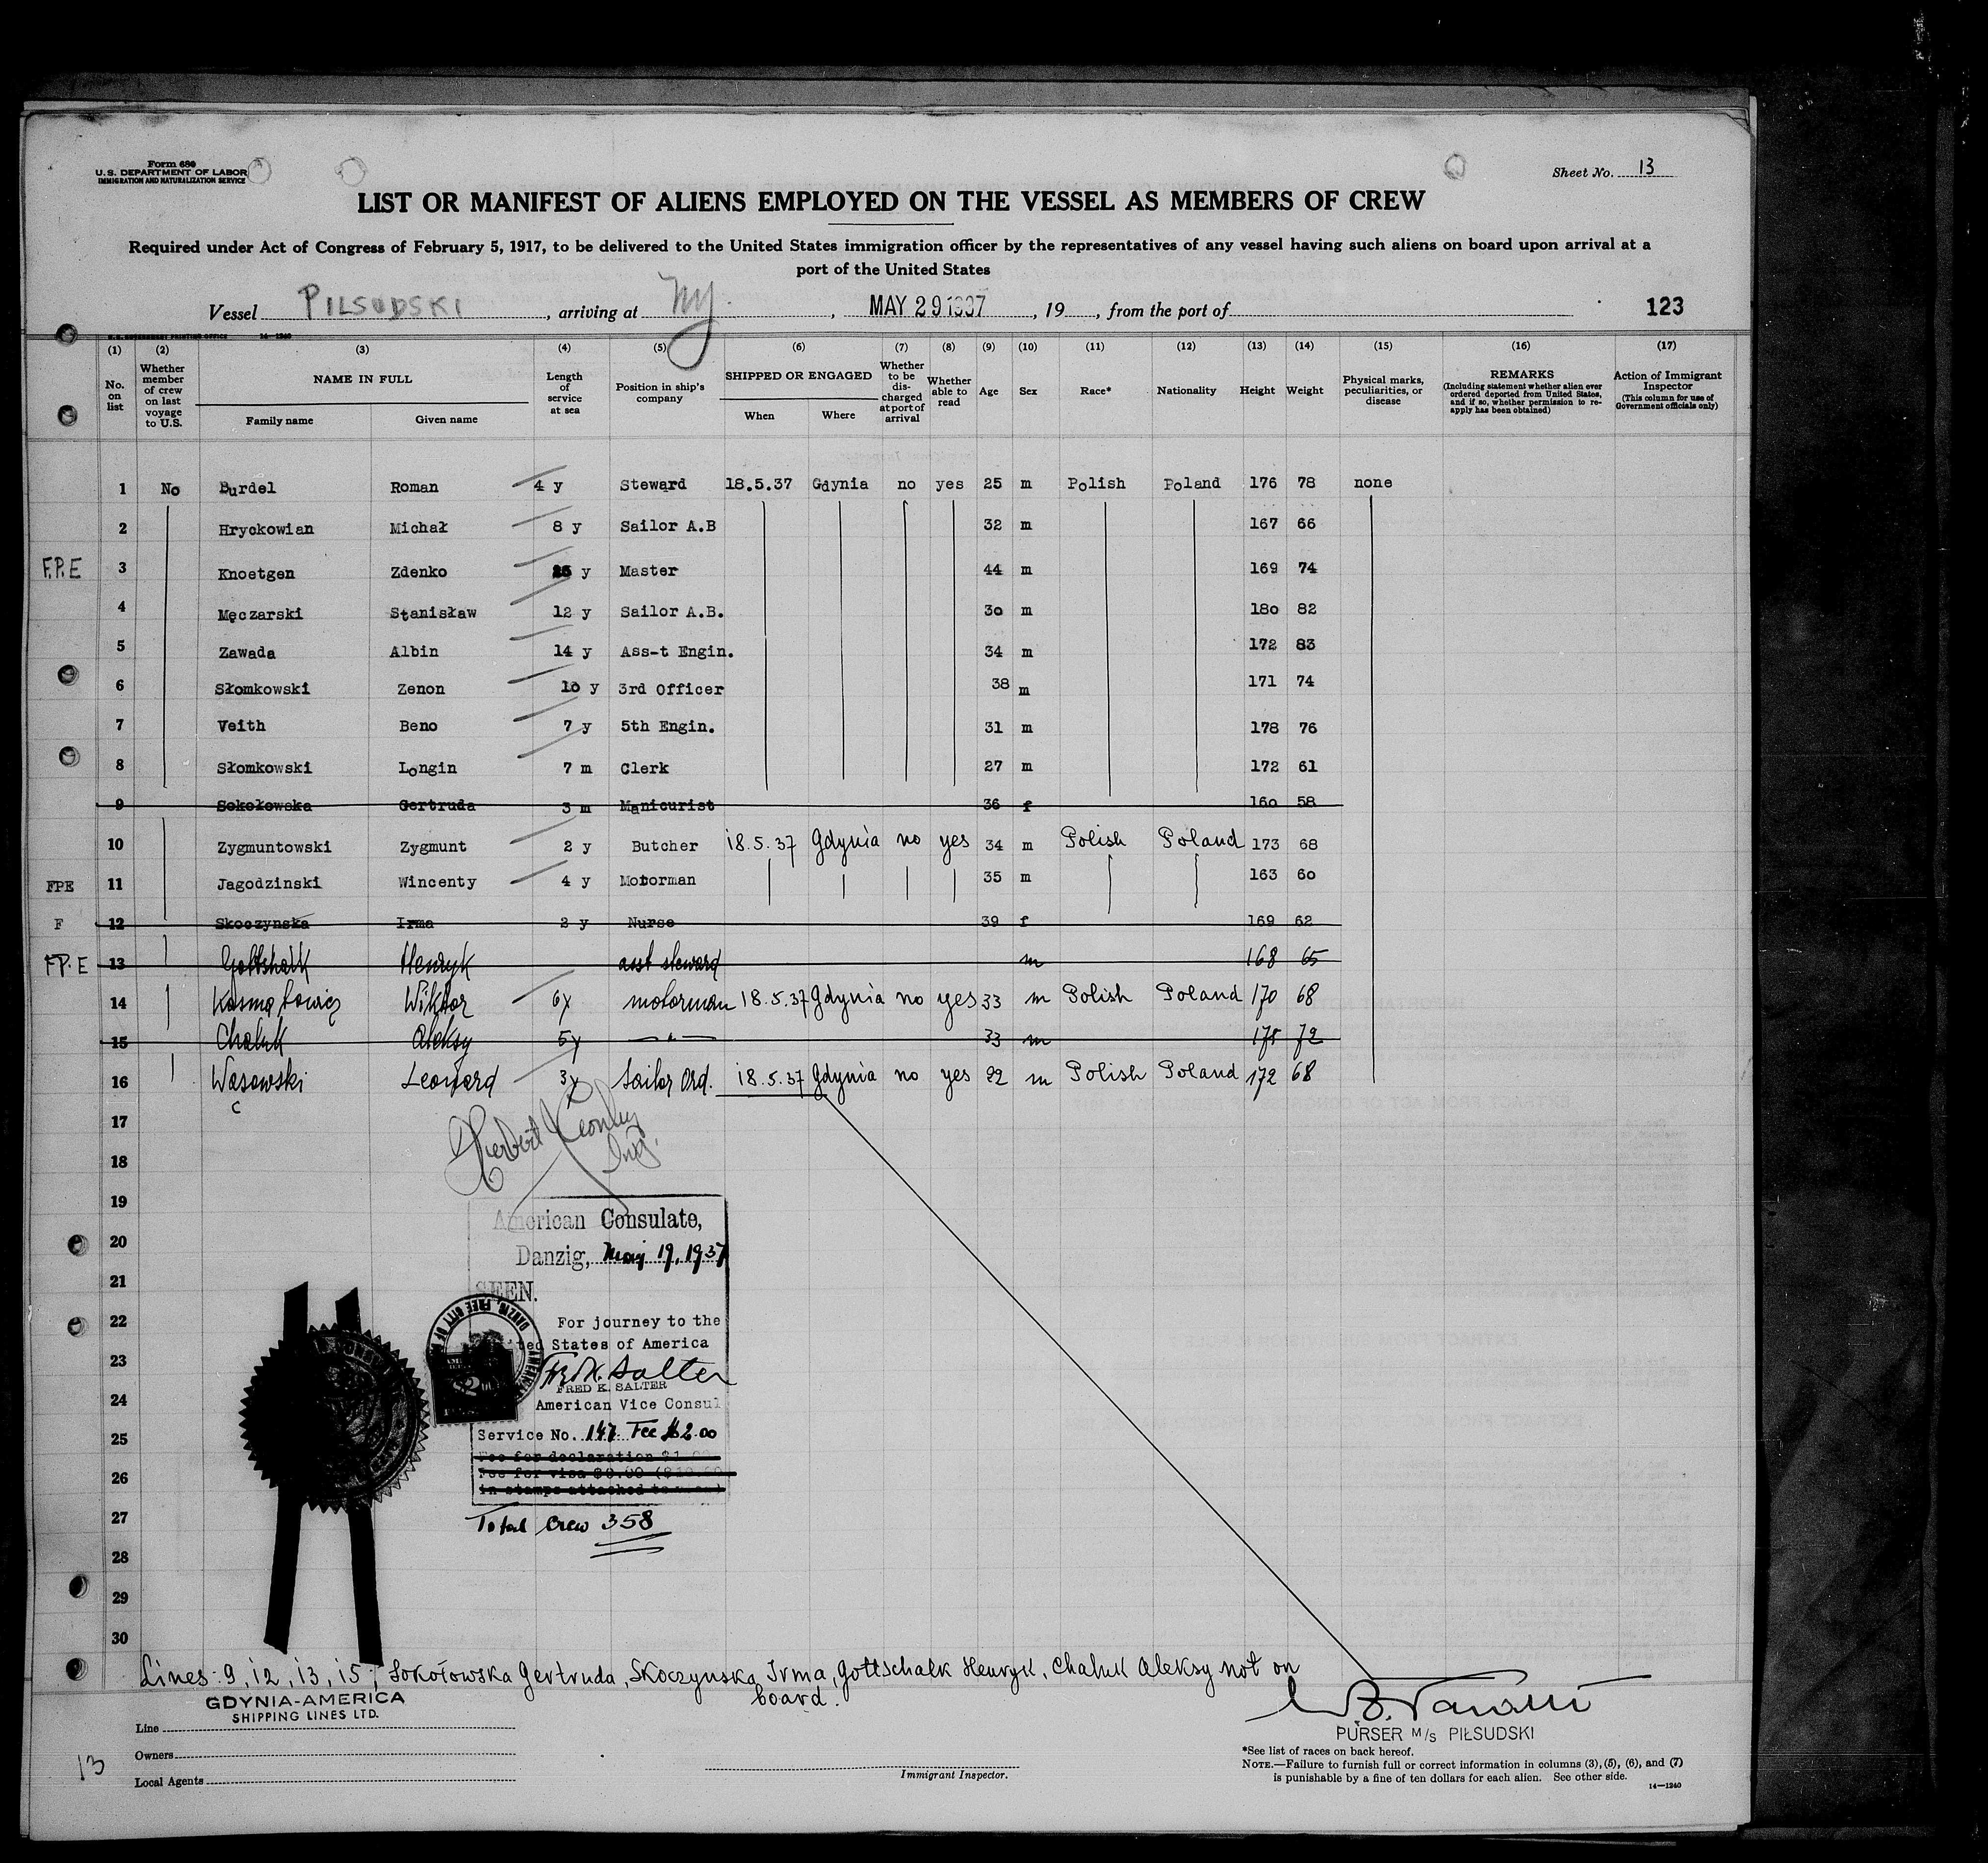 Form 680
U.S. DEPARTMENT OF LABOR
IMMIGRATION AND NATURALIZATION SERVICE
Sheet No. 13
LIST OR MANIFEST OF ALIENS EMPLOYED ON THE VESSEL AS MEMBERS OF CREW
Required under Act of Congress of February 5, 1917, to be delivered to the United States immigration officer by the representatives of any vessel having such aliens on board upon arrival at a
port of the United States
Vessel PILSUDSKI, arriving at NY., MAY 29 1937, 19, from the port of
123
U.S. GOVERNMENT PRINTING OFFICE 14—1240
(1) (2) (3) (4) (5) (6) (7) (8) (9) (10) (11) (12) (13) (14) (15) (16) (17)
No. on list
Whether member of crew on last voyage to U.S.
NAME IN FULL
Family name Given name
Length of service at sea
Position in ship's company
SHIPPED OR ENGAGED
When Where
Whether to be discharged at port of arrival
Whether able to read
Age Sex Race* Nationality Height Weight
Physical marks, peculiarities, or disease
REMARKS
(Including statement whether alien ever ordered deported from United States, and if so, whether permission to re-apply has been obtained)
Action of Immigrant Inspector
(This column for use of Government officials only)
1 No Burdel Roman 4 y Steward 18.5.37 Gdynia no yes 25 m Polish Poland 176 78 none
2 Hryckowian Michał 8 y Sailor A.B 32 m 167 66
F.P.E 3 Knoetgen Zdenko y Master 44 m 169 74
4 Męczarski Stanisław 12 y Sailor A.B. 30 m 180 82
5 Zawada Albin 14 y Ass-t Engin. 34 m 172 83
6 Słomkowski Zenon 10 y 3rd Officer 38 m 171 74
7 Veith Beno 7 y 5th Engin. 31 m 178 76
8 Słomkowski Longin 7 m Clerk 27 m 172 61
9 Sokołowska Gertruda 3 m Manicurist 36 f 160 58
10 Zygmuntowski Zygmunt 2 y Butcher 18.5.37 Gdynia no yes 34 m Polish Poland 173 68
FPE 11 Jagodzinski Wincenty 4 y Motorman 35 m 163 60
F 12 Skoczynska Irma 2 y Nurse 39 f 169 62
FP.E 13 Gottshalk Henryk asst steward m 168 65
14 Wiktor 6y motorman 18.5.37 Gdynia no yes 33 m Polish Poland 170 68
15 Chaluk Aleksy 5y —"— 33 m 178 72
16 Wasowski Leonard 3y Sailor Ord. 18.5.37 Gdynia no yes 22 m Polish Poland 172 68
c
17
Herbert
18
19
American Consulate,
20
Danzig, May 19, 1937
21
SEEN.
22
For journey to the
United States of America
23
Fred K. Salter
FRED K. SALTER
24
American Vice Consul
25
Service No. 147 Fee $2.00
Fee for declaration $1.00
26
Fee for visa $9.00 ($10.00
in stamps attached
27
Total Crew 358
28
29
30
Lines: 9, 12, 13, 15, Sokołowska Gertruda, Skoczynska Irma, Gottschalk Henryk, Chaluk Aleksy not on
board.
GDYNIA-AMERICA
SHIPPING LINES LTD.
Line
Owners
Local Agents
13
Immigrant Inspector.
PURSER M/s PIŁSUDSKI
*See list of races on back hereof.
NOTE.—Failure to furnish full or correct information in columns (3), (5), (6), and (7)
is punishable by a fine of ten dollars for each alien. See other side.
14—1240